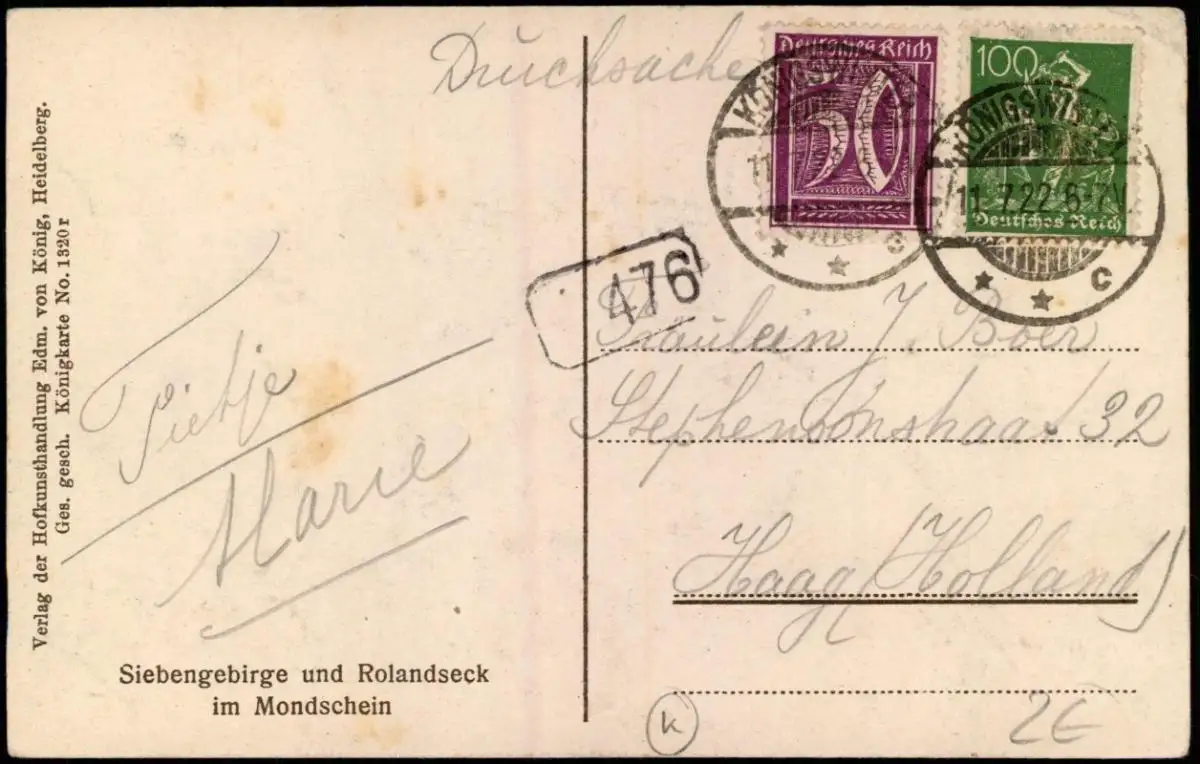 Verlag der Hofkunsthandlung Edm. von König, Heidelberg.
Ges. gesch. Königkarte No. 1320 r
Drucksache
Deutsches Reich
50
100
Deutsches Reich
KÖNIGSWI
11
c
KÖNIGSWI
11.7.22 6-7V
c
476
Fräulein J. Boer
32
Haag (Holland)
Pietje
Marie
Siebengebirge und Rolandseck
im Mondschein
K
2€